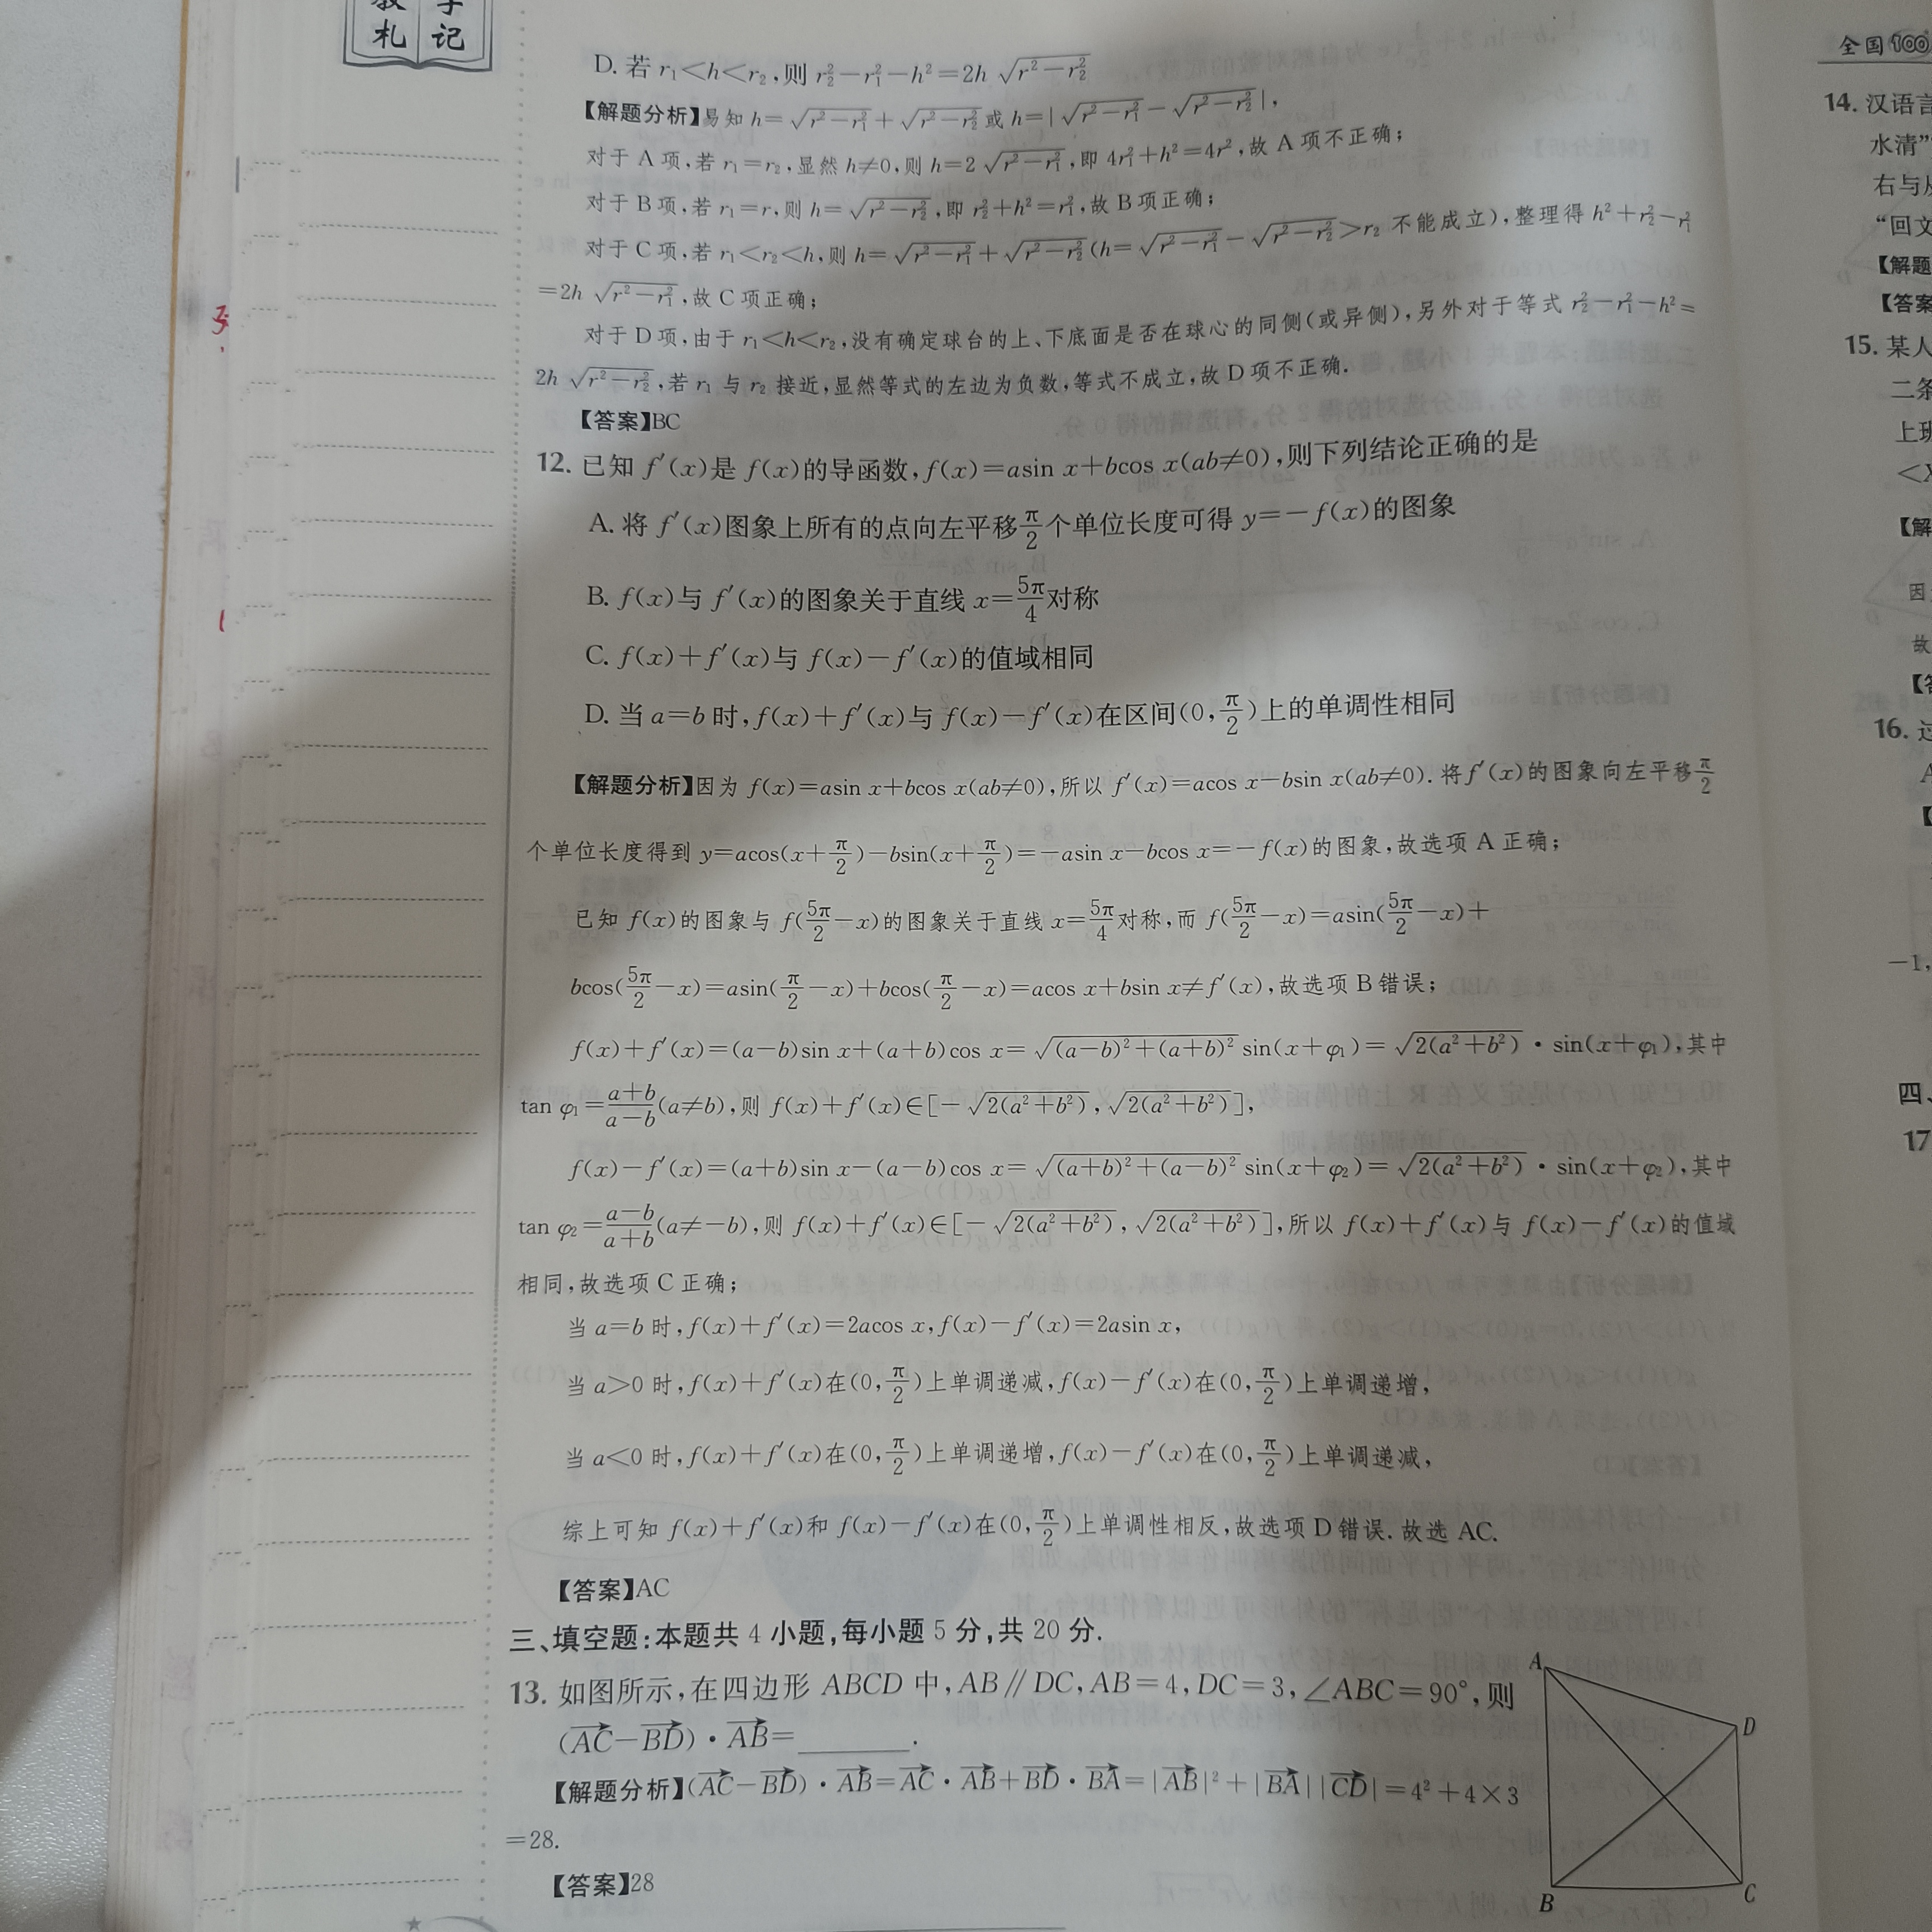 札 记
D. 若 r₁<h<r₂,则 r₂²−r₁²−h²=2h√(r²−r₂²)
【解题分析】易知 h=√(r²−r₁²)+√(r²−r₂²)或 h=|√(r²−r₁²)−√(r²−r₂²)|,
对于 A 项,若 r₁=r₂,显然 h≠0,则 h=2√(r²−r₁²),即 4r₁²+h²=4r²,故 A 项不正确;
对于 B 项,若 r₁=r,则 h=√(r²−r₂²),即 r₂²+h²=r₁²,故 B 项正确;
对于 C 项,若 r₁<r₂<h,则 h=√(r²−r₁²)+√(r²−r₂²)(h=√(r²−r₁²)−√(r²−r₂²)>r₂ 不能成立),整理得 h²+r₂²−r₁²
=2h√(r²−r₁²),故 C 项正确;
对于 D 项,由于 r₁<h<r₂,没有确定球台的上、下底面是否在球心的同侧(或异侧),另外对于等式 r₂²−r₁²−h²=
2h√(r²−r₂²),若 r₁ 与 r₂ 接近,显然等式的左边为负数,等式不成立,故 D 项不正确.
【答案】BC
12. 已知 f′(x)是 f(x)的导函数,f(x)=asin x+bcos x(ab≠0),则下列结论正确的是
A. 将 f′(x)图象上所有的点向左平移π/2个单位长度可得 y=−f(x)的图象
B. f(x)与 f′(x)的图象关于直线 x=5π/4对称
C. f(x)+f′(x)与 f(x)−f′(x)的值域相同
D. 当 a=b 时,f(x)+f′(x)与 f(x)−f′(x)在区间(0,π/2)上的单调性相同
【解题分析】因为 f(x)=asin x+bcos x(ab≠0),所以 f′(x)=acos x−bsin x(ab≠0). 将 f′(x)的图象向左平移π/2
个单位长度得到 y=acos(x+π/2)−bsin(x+π/2)=−asin x−bcos x=−f(x)的图象,故选项 A 正确;
已知 f(x)的图象与 f(5π/2−x)的图象关于直线 x=5π/4对称,而 f(5π/2−x)=asin(5π/2−x)+
bcos(5π/2−x)=asin(π/2−x)+bcos(π/2−x)=acos x+bsin x≠f′(x),故选项 B 错误;
f(x)+f′(x)=(a−b)sin x+(a+b)cos x=√((a−b)²+(a+b)²)sin(x+φ₁)=√(2(a²+b²))·sin(x+φ₁),其中
tan φ₁=(a+b)/(a−b)(a≠b),则 f(x)+f′(x)∈[−√(2(a²+b²)),√(2(a²+b²))],
f(x)−f′(x)=(a+b)sin x−(a−b)cos x=√((a+b)²+(a−b)²)sin(x+φ₂)=√(2(a²+b²))·sin(x+φ₂),其中
tan φ₂=(a−b)/(a+b)(a≠−b),则 f(x)+f′(x)∈[−√(2(a²+b²)),√(2(a²+b²))],所以 f(x)+f′(x)与 f(x)−f′(x)的值域
相同,故选项 C 正确;
当 a=b 时,f(x)+f′(x)=2acos x,f(x)−f′(x)=2asin x,
当 a>0 时,f(x)+f′(x)在(0,π/2)上单调递减,f(x)−f′(x)在(0,π/2)上单调递增,
当 a<0 时,f(x)+f′(x)在(0,π/2)上单调递增,f(x)−f′(x)在(0,π/2)上单调递减,
综上可知 f(x)+f′(x)和 f(x)−f′(x)在(0,π/2)上单调性相反,故选项 D 错误. 故选 AC.
【答案】AC
三、填空题:本题共 4 小题,每小题 5 分,共 20 分.
13. 如图所示,在四边形 ABCD 中,AB∥DC,AB=4,DC=3,∠ABC=90°,则
(AC→−BD→)·AB→=________.
【解题分析】(AC→−BD→)·AB→=AC→·AB→+BD→·BA→=|AB→|²+|BA→||CD→|=4²+4×3
=28.
【答案】28
A
D
B
C
全国100
14. 汉语言
水清”
右与从
“回文
【解题
【答案
15. 某人
二条
上班
<X
【解
因
故
【答
16. 过
A
−1,
四、
17